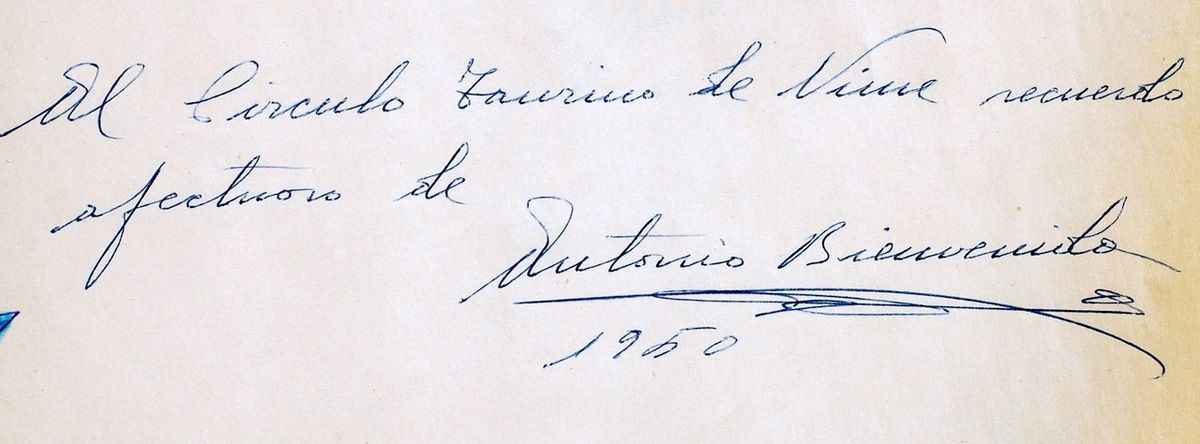 Al Circulo Taurino de Nime recuerdo
afectuoso de
Antonio Bienvenida
1950